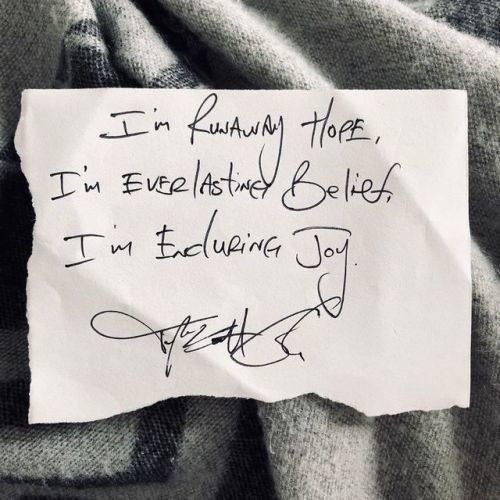 I'm Runaway Hope,
I'm Everlasting Belief,
I'm Enduring Joy.